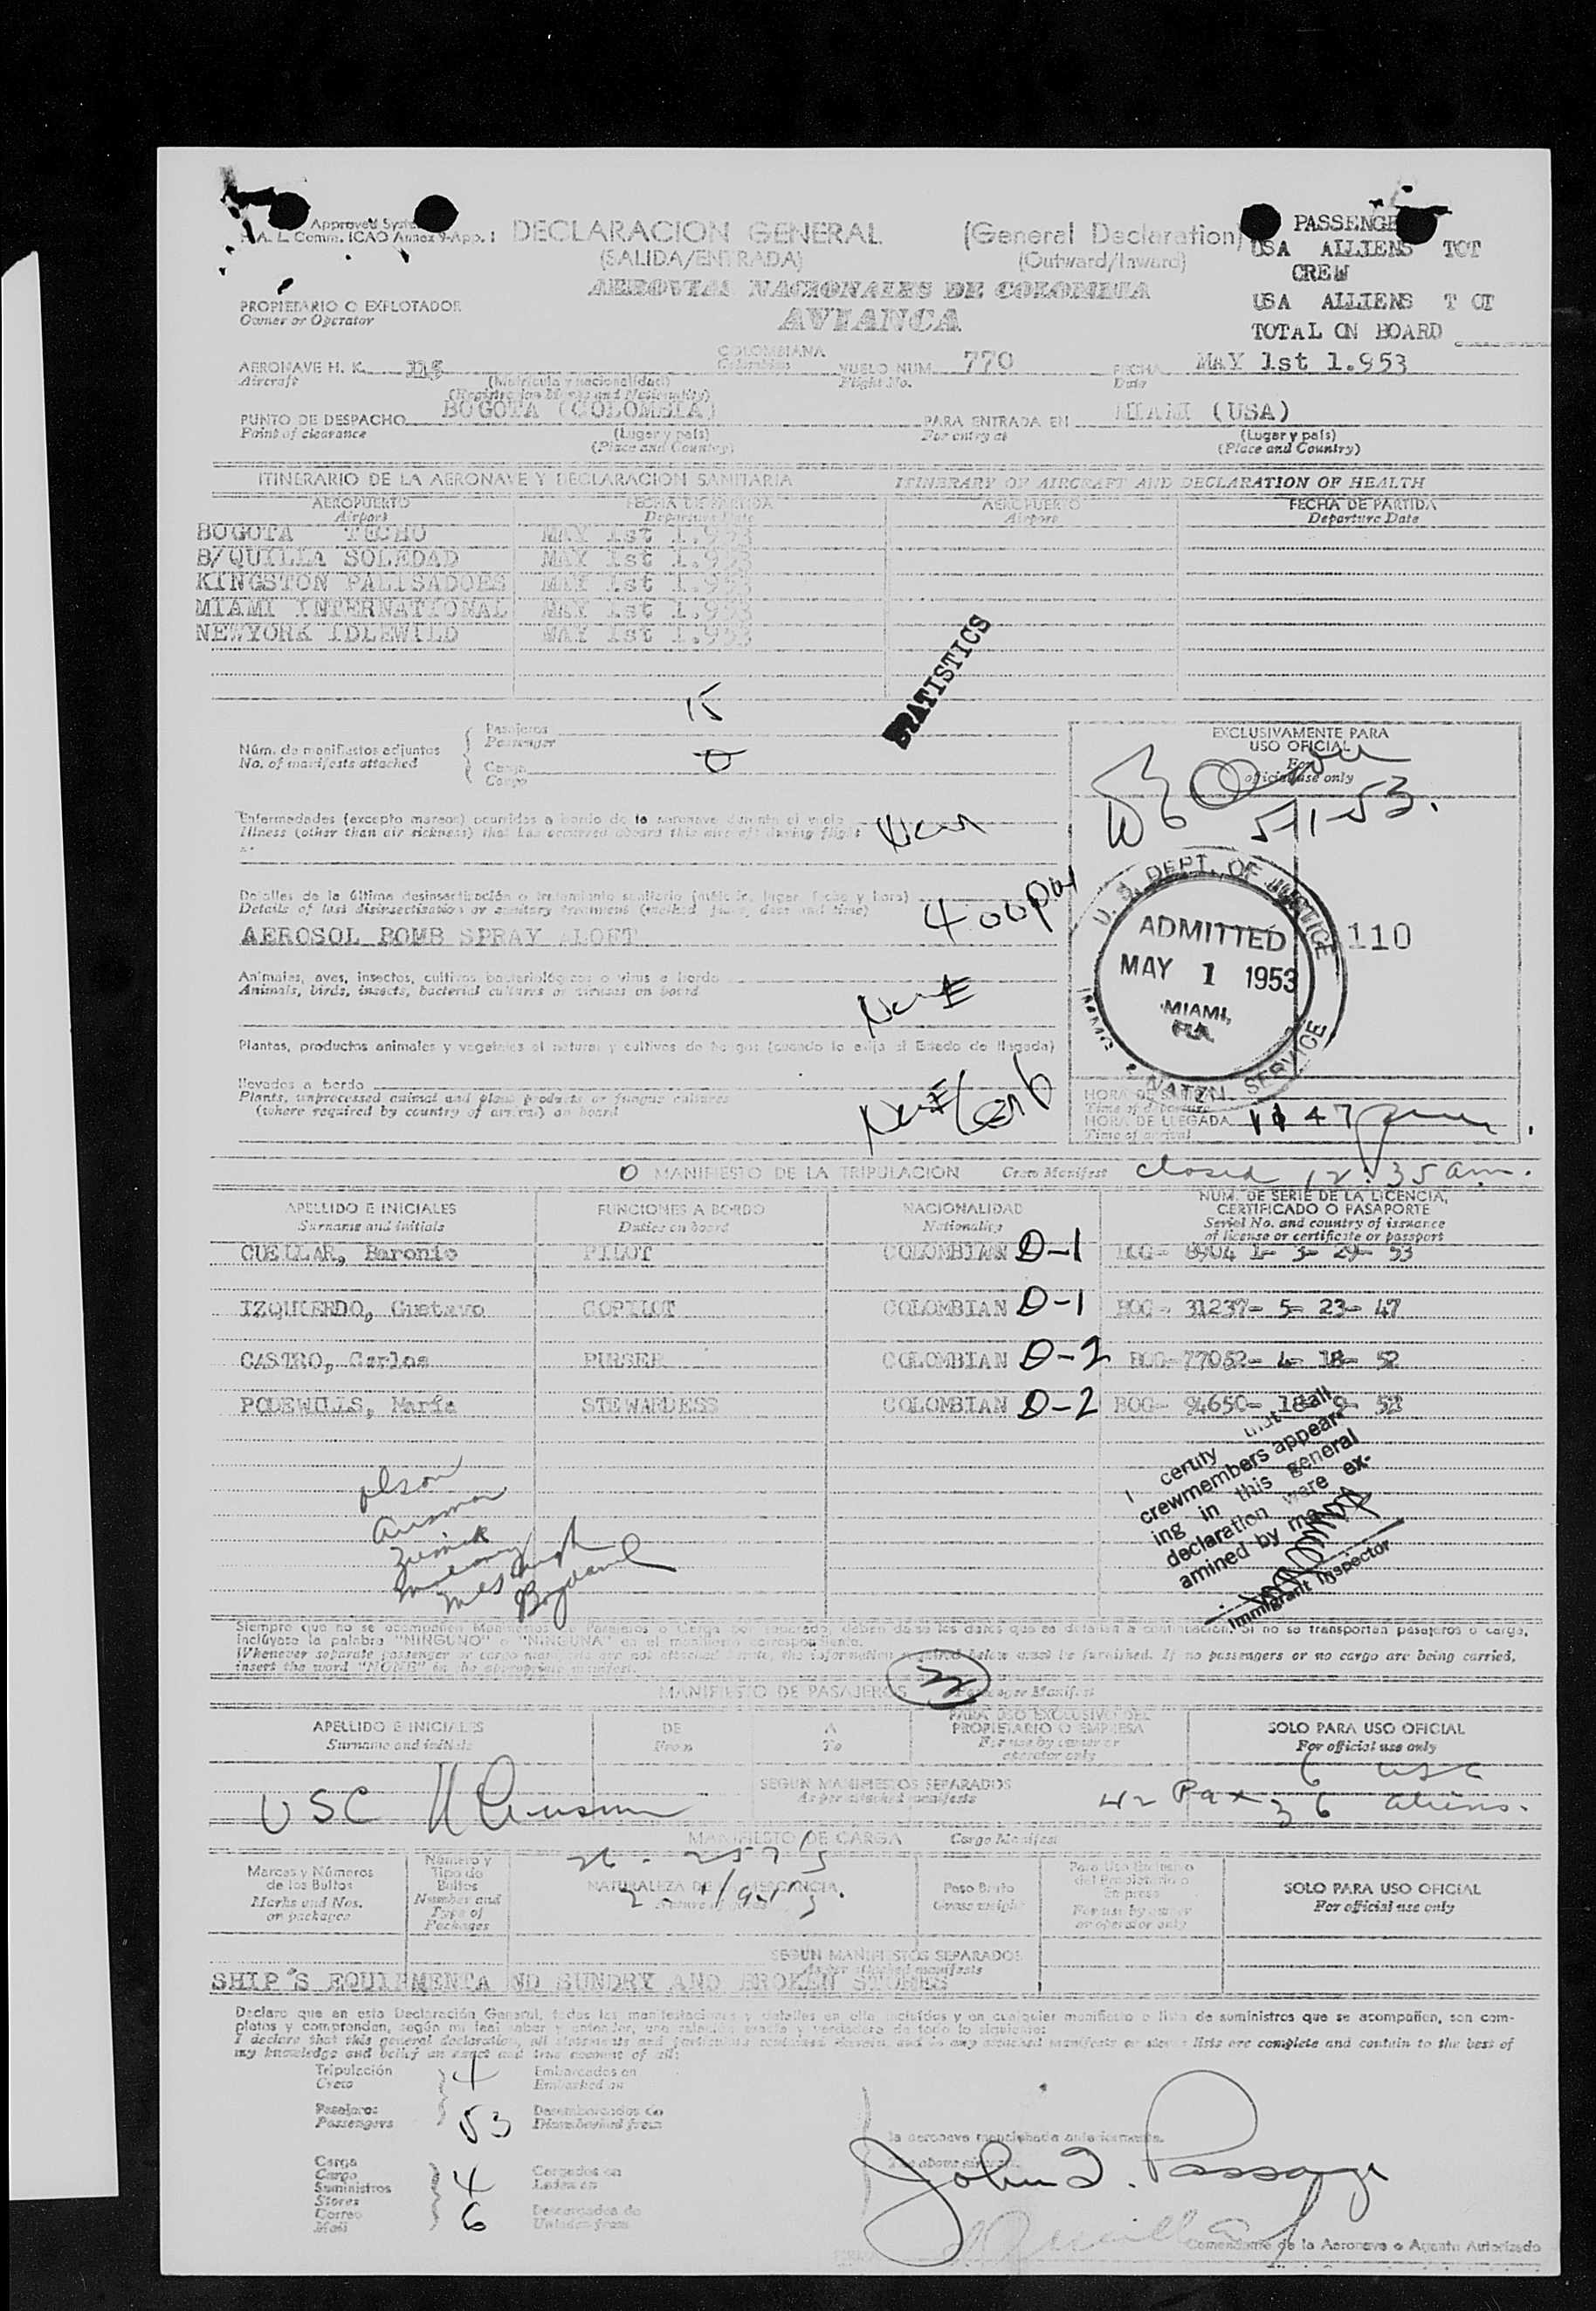 DECLARACION GENERAL (General Declaration)
(SALIDA/ENTRADA) (Outward/Inward)
AEROVIAS NACIONALES DE COLOMBIA
AVIANCA
PASSENGE
USA ALLIENS TOT
CREW
USA ALLIENS T OT
TOTAL ON BOARD
PROPIETARIO O EXPLOTADOR
Owner or Operator
AERONAVE H. K. COLOMBIANA VUELO NUM. 770 FECHA MAY 1st 1.953
Aircraft (Matrícula y nacionalidad) Colombian Flight No. Date
PUNTO DE DESPACHO BOGOTA (COLOMBIA) PARA ENTRADA EN MIAMI (USA)
Point of clearance (Lugar y país) For entry at (Lugar y país)
(Place and Country) (Place and Country)
ITINERARIO DE LA AERONAVE Y DECLARACION SANITARIA ITINERARY OF AIRCRAFT AND DECLARATION OF HEALTH
AEROPUERTO FECHA DE PARTIDA AEROPUERTO FECHA DE PARTIDA
Airport Departure Date Airport Departure Date
BOGOTA TECHO MAY 1st 1.953
B/QUILLA SOLEDAD MAY 1st 1.953
KINGSTON PALISADOES MAY 1st 1.953
MIAMI INTERNATIONAL MAY 1st 1.953
NEWYORK IDLEWILD MAY 1st 1.953
STATISTICS
Núm. de manifiestos adjuntos Pasajeros 15
No. of manifests attached Passenger
Carga 0
Cargo
EXCLUSIVAMENTE PARA
USO OFICIAL
For
official use only
5-1-53.
Enfermedades (excepto mareos) ocurridas a bordo de la aeronave durante el vuelo
Illness (other than air sickness) that has occurred aboard this aircraft during flight
Detalles de la última desinsectización o tratamiento sanitario (método, lugar, fecha y hora)
Details of last disinsectization or sanitary treatment (method, place, date and time)
AEROSOL BOMB SPRAY ALOFT 4 00 pm
Animales, aves, insectos, cultivos bacteriológicos o virus a bordo
Animals, birds, insects, bacterial cultures or viruses on board NonE
Plantas, productos animales y vegetales al natural y cultivos de hongos (cuando lo exija el Estado de llegada)
llevados a bordo
Plants, unprocessed animal and plant products or fungus cultures
(where required by country of arrival) on board NonE
U. S. DEPT. OF JUSTICE
ADMITTED
MAY 1 1953
MIAMI,
FLA.
IMMIG. & NATZN. SERVICE
110
HORA DE SALIDA
Time of departure
HORA DE LLEGADA 11 47 pm
Time of arrival
closed 12:35 am.
MANIFIESTO DE LA TRIPULACION Crew Manifest
APELLIDO E INICIALES FUNCIONES A BORDO NACIONALIDAD NUM. DE SERIE DE LA LICENCIA, CERTIFICADO O PASAPORTE
Surname and initials Duties on board Nationality Serial No. and country of issuance of license or certificate or passport
CUELLAR, Baronio PILOT COLOMBIAN D-1 BOG- 8904 1- 3- 29- 53
IZQUIERDO, Gustavo COPILOT COLOMBIAN D-1 BOG- 31237- 5- 23- 47
CASTRO, Carlos PURSER COLOMBIAN D-2 BOG-77052- 4- 18- 52
PODEWILLS, María STEWARDESS COLOMBIAN D-2 BOG- 94650- 18- 9- 52
I certify that all
crewmembers appear-
ing in this general
declaration were ex-
amined by me
Immigrant Inspector
Olson
Siempre que no se acompañen Manifiestos de Pasajeros o Carga por separado, deben darse los datos que se detallan a continuación. Si no se transportan pasajeros o carga,
inclúyase la palabra "NINGUNO" o "NINGUNA" en el manifiesto correspondiente.
Whenever separate passenger or cargo manifests are not attached hereto, the information required below must be furnished. If no passengers or no cargo are being carried,
insert the word "NONE" in the appropriate manifest.
MANIFIESTO DE PASAJEROS Passenger Manifest
APELLIDO E INICIALES DE A PARA USO EXCLUSIVO DEL PROPIETARIO O EMPRESA SOLO PARA USO OFICIAL
Surname and initials From To For use by owner or operator only For official use only
SEGUN MANIFIESTOS SEPARADOS
As per attached manifests
USC
6 USC
42 Pax 36 aliens.
MANIFIESTO DE CARGA Cargo Manifest
Marcas y Números de los Bultos Número y Tipo de Bultos NATURALEZA DE MERCANCIA Peso Bruto Para Uso Exclusivo del Propietario o Empresa SOLO PARA USO OFICIAL
Marks and Nos. on packages Number and Type of Packages Nature of goods Gross weight For use by owner or operator only For official use only
SEGUN MANIFIESTOS SEPARADOS
As per attached manifests
SHIP'S EQUIPMENTA ND SUNDRY AND BROKEN STORES
Declaro que en esta Declaración General, todas las manifestaciones y detalles en ella incluídos y en cualquier manifiesto o lista de suministros que se acompañen, son com-
pletos y comprenden, según mi leal saber y entender, una relación exacta y verdadera de todo lo siguiente:
I declare that this general declaration, all statements and particulars contained therein, and in any attached manifests or stores lists are complete and contain to the best of
my knowledge and belief an exact and true account of all:
Tripulación 4 Embarcados en
Crew Embarked on
Pasajeros 53 Desembarcados de
Passengers Disembarked from
la aeronave mencionada anteriormente.
The above aircraft
Carga
Cargo
Suministros 4 Cargados en
Stores Laden on
Correo 6 Descargados de
Mail Unladen from
Comandante de la Aeronave o Agente Autorizado